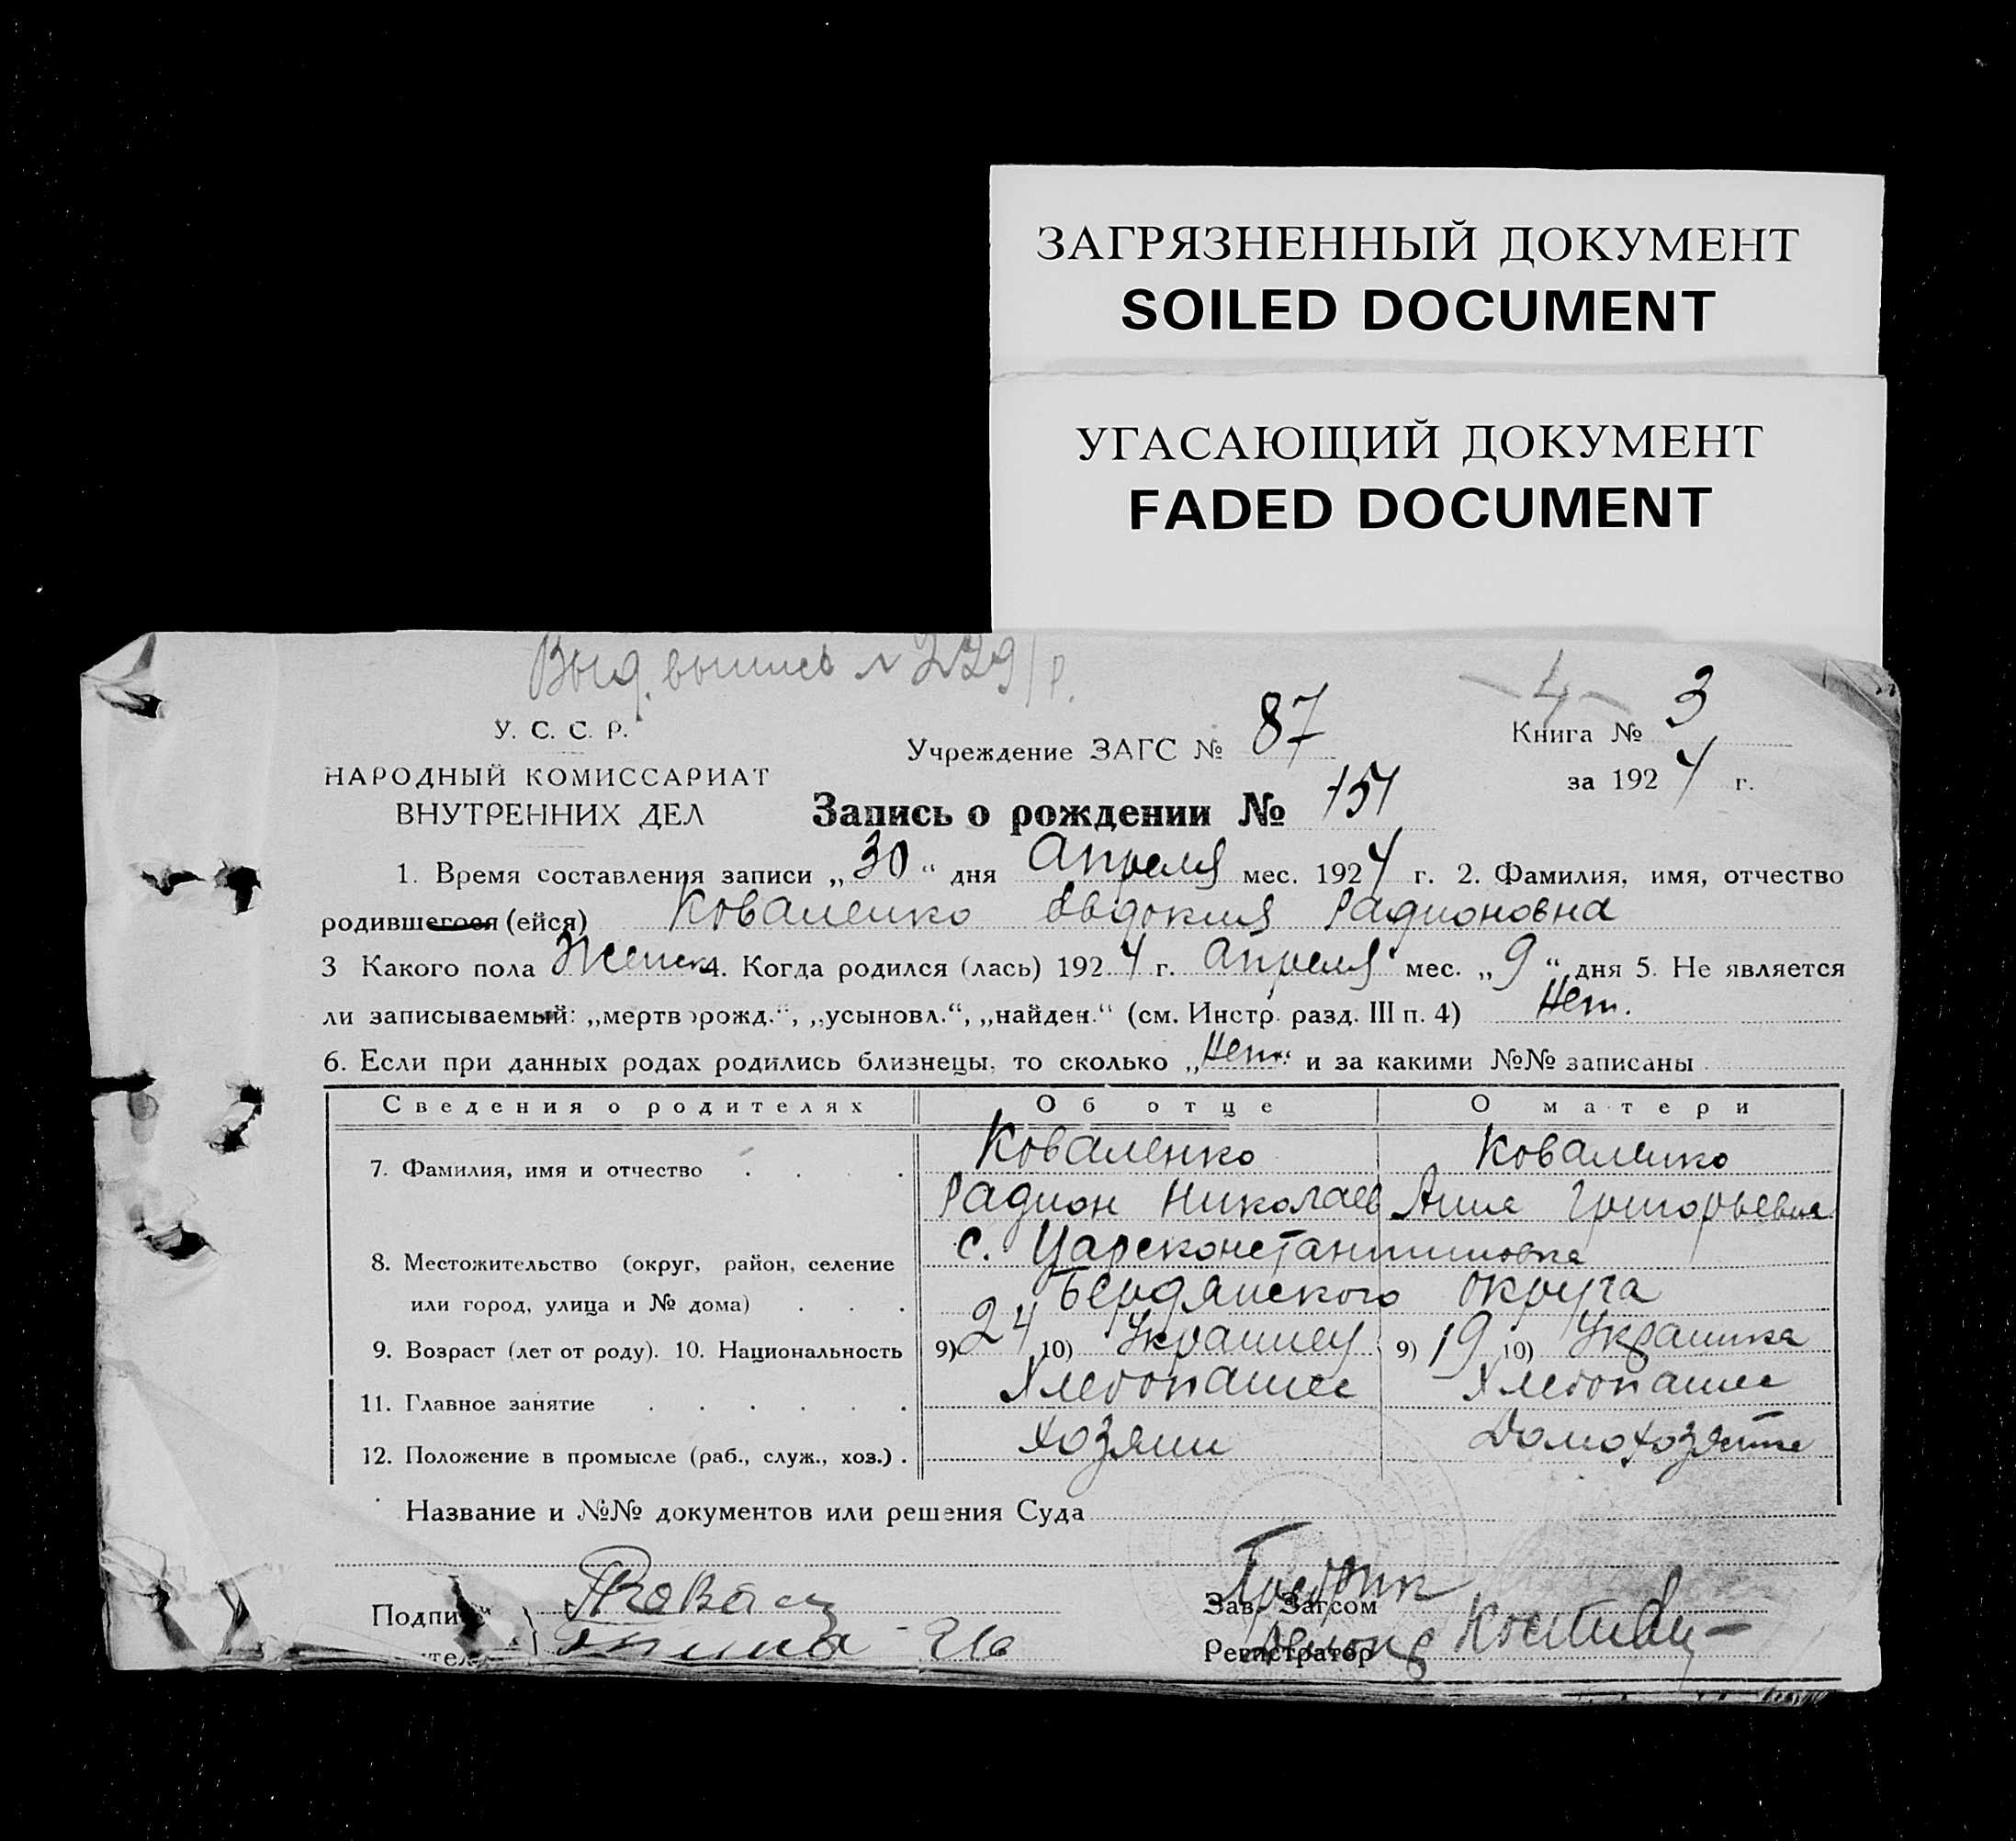 ЗАГРЯЗНЕННЫЙ ДОКУМЕНТ
SOILED DOCUMENT
УГАСАЮЩИЙ ДОКУМЕНТ
FADED DOCUMENT
Выд. выпись № 229/р.
- 4 -
У. С. С. Р.
Учреждение ЗАГС № 87
Книга № 3
НАРОДНЫЙ КОМИССАРИАТ
ВНУТРЕННИХ ДЕЛ
за 1924 г.
Запись о рождении № 154
1. Время составления записи „30“ дня Апреля мес. 1924 г. 2. Фамилия, имя, отчество
родившегося (ейся) Коваленко Евдокия Радионовна
3 Какого пола Женск 4. Когда родился (лась) 1924 г. Апреля мес. „9“ дня 5. Не является
ли записываемый: „мертворожд.“, „усыновл.“, „найден.“ (см. Инстр. разд. III п. 4) Нет.
6. Если при данных родах родились близнецы, то сколько „Нет“ и за какими №№ записаны
Сведения о родителях Об отце О матери
7. Фамилия, имя и отчество . . . . Коваленко Коваленко
Радион Николаев Анна Григорьевна
8. Местожительство (округ, район, селение с. Цареконстантиновка
или город, улица и № дома) . . . Бердянского округа
9. Возраст (лет от роду). 10. Национальность 9) 24 10) Украинец 9) 19 10) Украинка
11. Главное занятие . . . . . . Хлебопашес Хлебопашес
12. Положение в промысле (раб., служ., хоз.) . Хозяин Домохозяйка
Название и №№ документов или решения Суда
Подпи
Зав. Загсом
тел
Регистратор